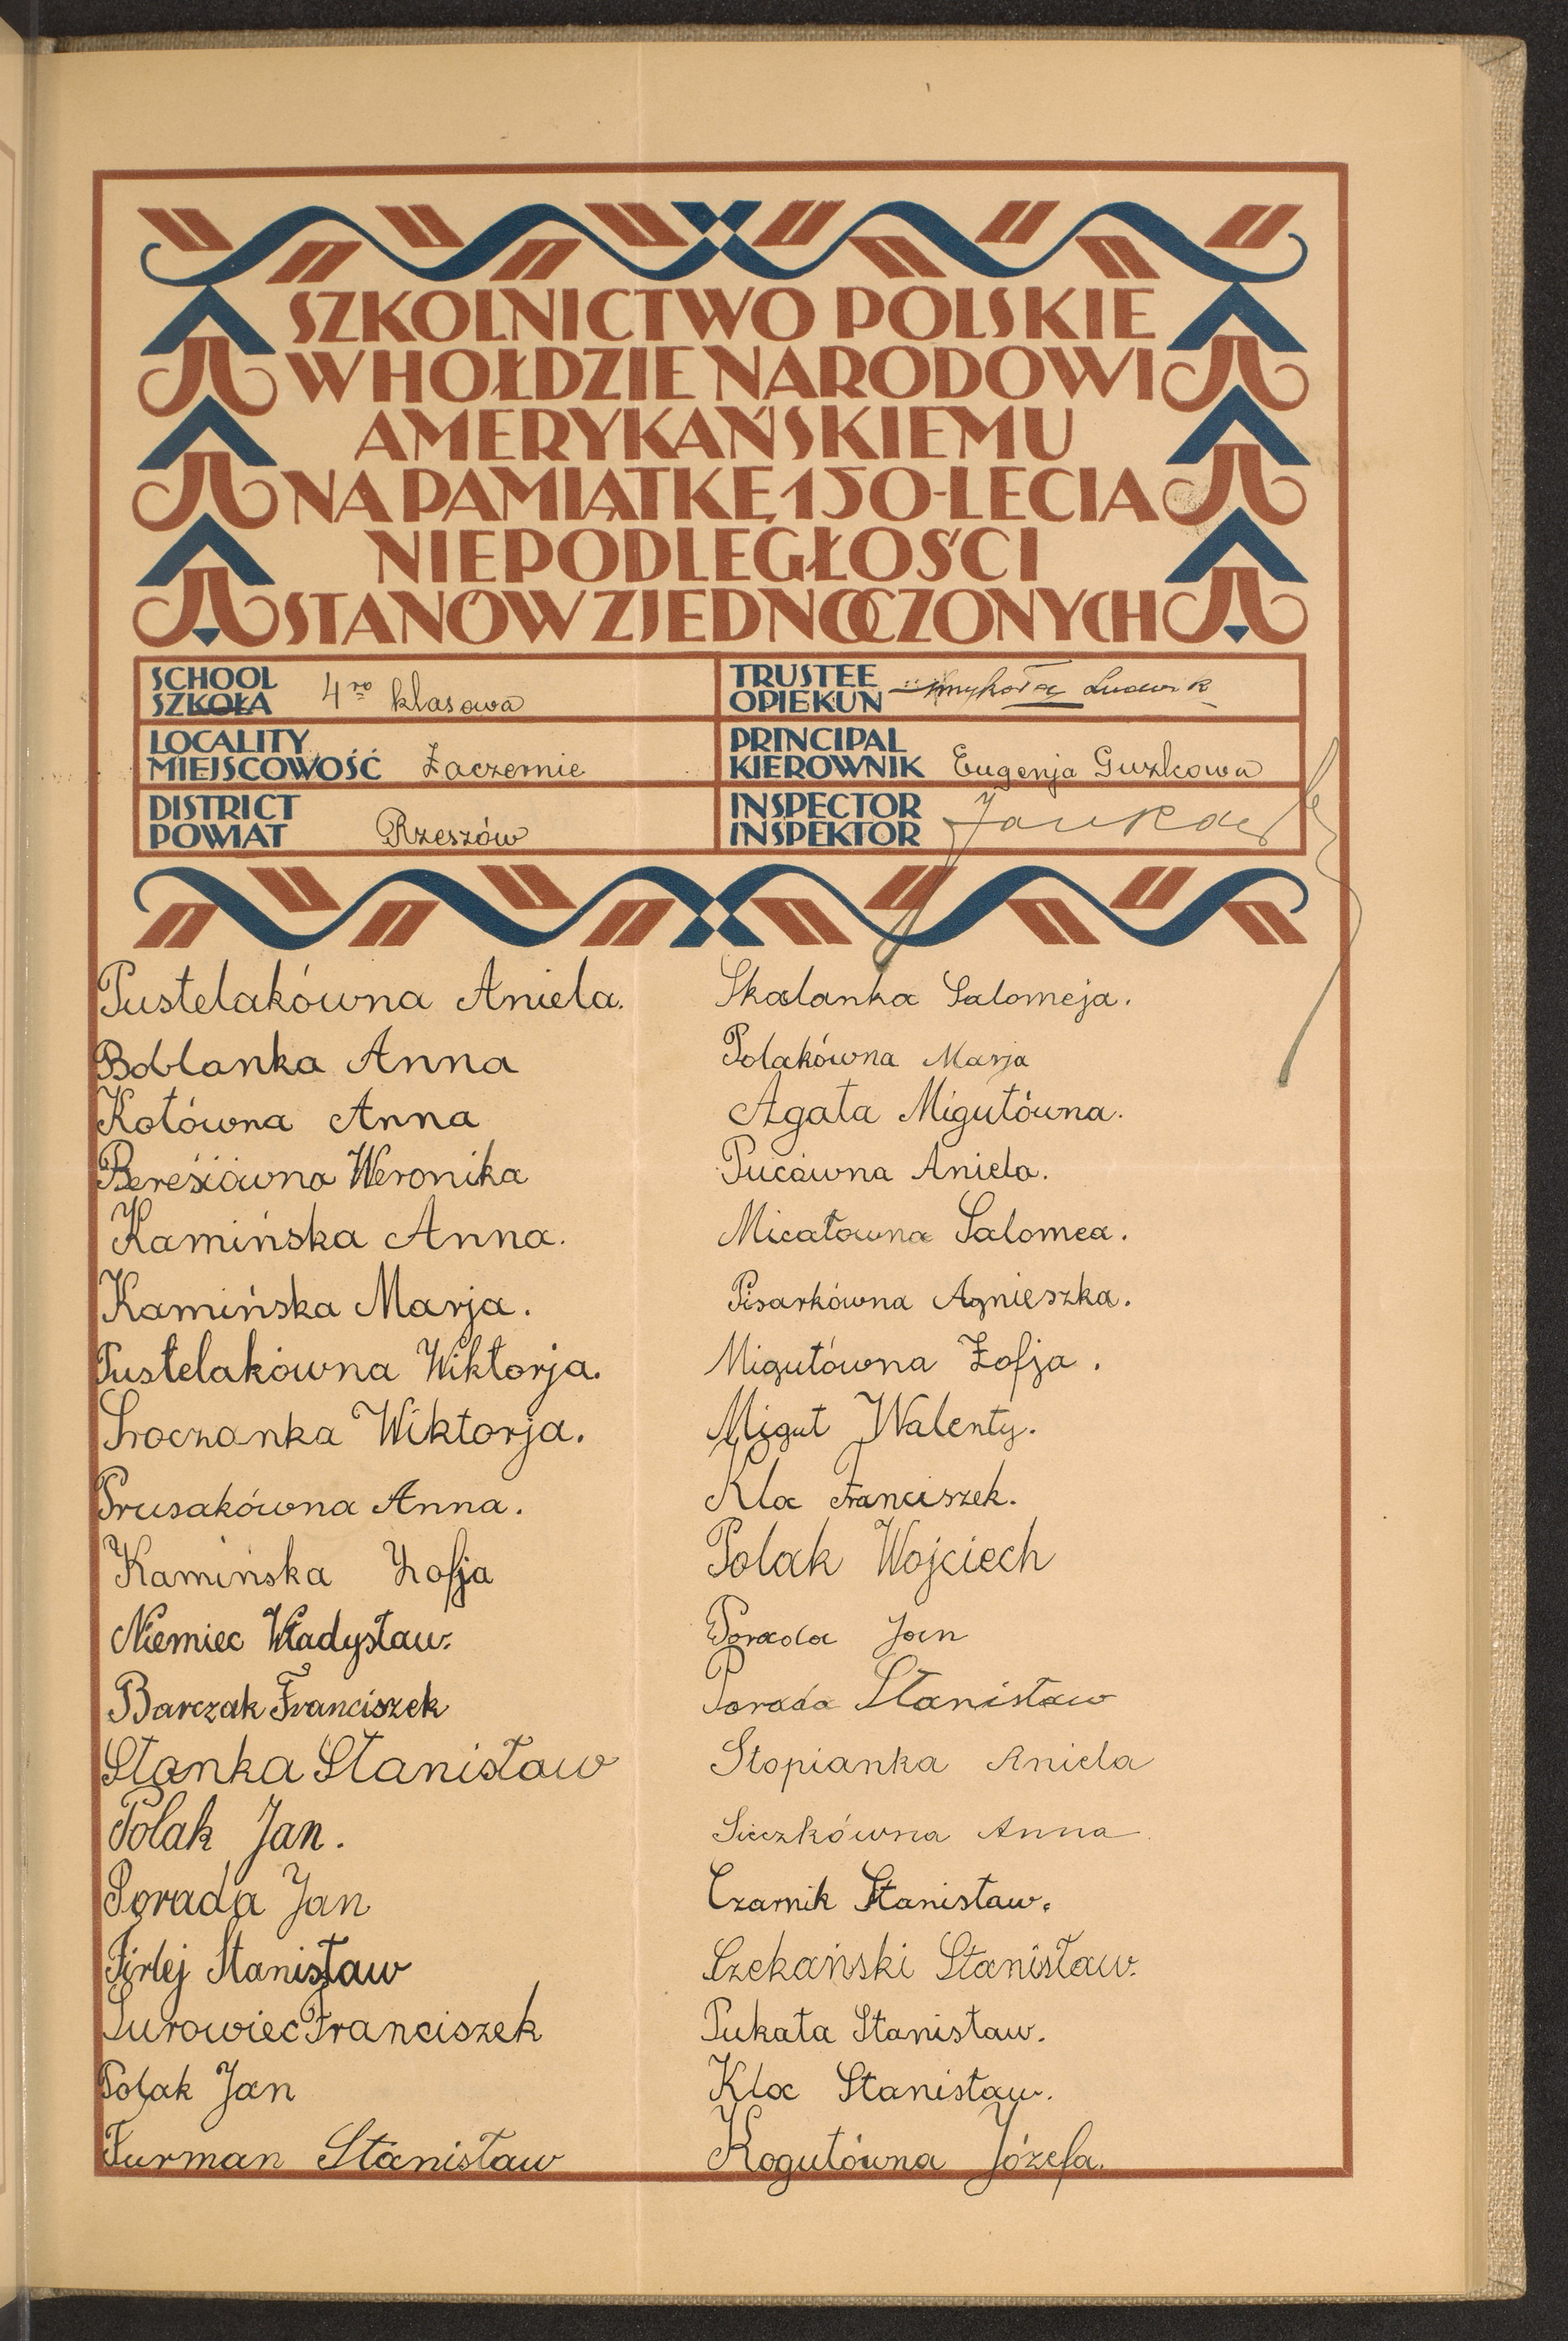 SZKOLNICTWO POLSKIE
W HOŁDZIE NARODOWI
AMERYKAŃSKIEMU
NA PAMIĄTKĘ 150-LECIA
NIEPODLEGŁOŚCI
STANÓW ZJEDNOCZONYCH
SCHOOL
SZKOŁA 4ro klasowa
TRUSTEE
OPIEKUN Ludwik
LOCALITY
MIEJSCOWOŚĆ Zaczernie
PRINCIPAL
KIEROWNIK Eugenja Guzkowa
DISTRICT
POWIAT Rzeszów
INSPECTOR
INSPEKTOR
Pustelakówna Aniela.
Anna
Kotówna Anna
Bereśiówna Weronika
Kamińska Anna.
Kamińska Marja.
Pustelakówna Wiktorja.
Sroczanka Wiktorja.
Prusakówna Anna.
Kamińska Zofja
Niemiec Władysław.
Barczak Franciszek
Stanka Stanisław
Polak Jan.
Porada Jan
Firlej Stanisław
Surowiec Franciszek
Polak Jan
Furman Stanisław
Skalanka Salomeja.
Polakówna Marja
Agata Migutówna.
Pucówna Aniela.
Micałowna Salomea.
Pisarkówna Agnieszka.
Migutówna Zofja.
Migut Walenty.
Kloc Franciszek.
Polak Wojciech
Porada Jan
Porada Stanisław
Stopianka Aniela
Sieczkówna Anna
Czarnik Stanisław.
Czekański Stanisław.
Pukała Stanisław.
Kloc Stanisław.
Kogutówna Józefa.